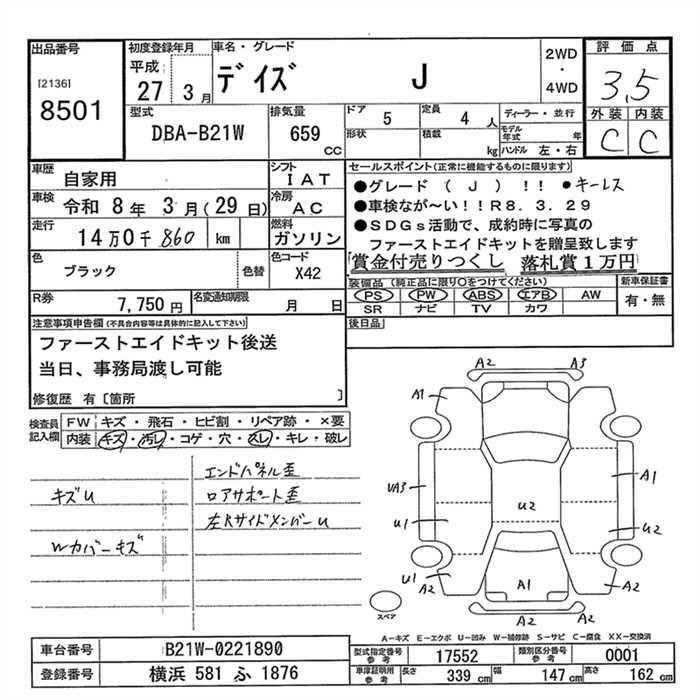 出品番号
[2136]
8501
初度登録年月
平成
27 3月
車名・グレード
デイズ J
2WD
・
4WD
評価点
3.5
外装 内装
C C
型式
DBA-B21W
排気量
659
CC
ドア 5
形状
定員 4 人
積載 kg
ディーラー・並行
モデル年式 年
ハンドル 左・右
車歴 自家用
車検 令和 8年 3月(29日)
走行 14万0千860 km
シフト IAT
冷房 AC
燃料 ガソリン
色 ブラック
色替
色コード X42
R券 7,750円
名変通知期限 月 日
セールスポイント(正常に機能するものに限ります)
●グレード ( J ) !! ●キーレス
●車検なが~い!!R8.3.29
●SDGs活動で、成約時に写真の
ファーストエイドキットを贈呈致します
「賞金付売りつくし 落札賞1万円
装備品 (純正品に限り○をつけてください)
PS PW ABS エアB AW
SR ナビ TV カワ
新車保証書
有・無
後日品
注意事項申告欄(不具合内容等は具体的に記入して下さい)
ファーストエイドキット後送
当日、事務局渡し可能
修復歴 有〔箇所 〕
検査員記入欄
FW キズ・飛石・ヒビ割・リペア跡・×要
内装 キズ・汚レ・コゲ・穴・スレ・キレ・破レ
エンドパネル歪
キズU
ロアサポート歪
左RサイドメンバーU
Wカバーキズ
A2 A3
A1
VA3
A1
U2
U1
U2
U1
A2
A1
A2
A2 A2
スペア
A-キズ E-エクボ U-凹み W-補修跡 S-サビ C-腐食 XX-交換済
車台番号 B21W-0221890
登録番号 横浜 581 ふ 1876
型式指定番号 参考 17552
類別区分番号 参考 0001
車庫証明用 参考 長さ 339 cm 幅 147 cm 高さ 162 cm